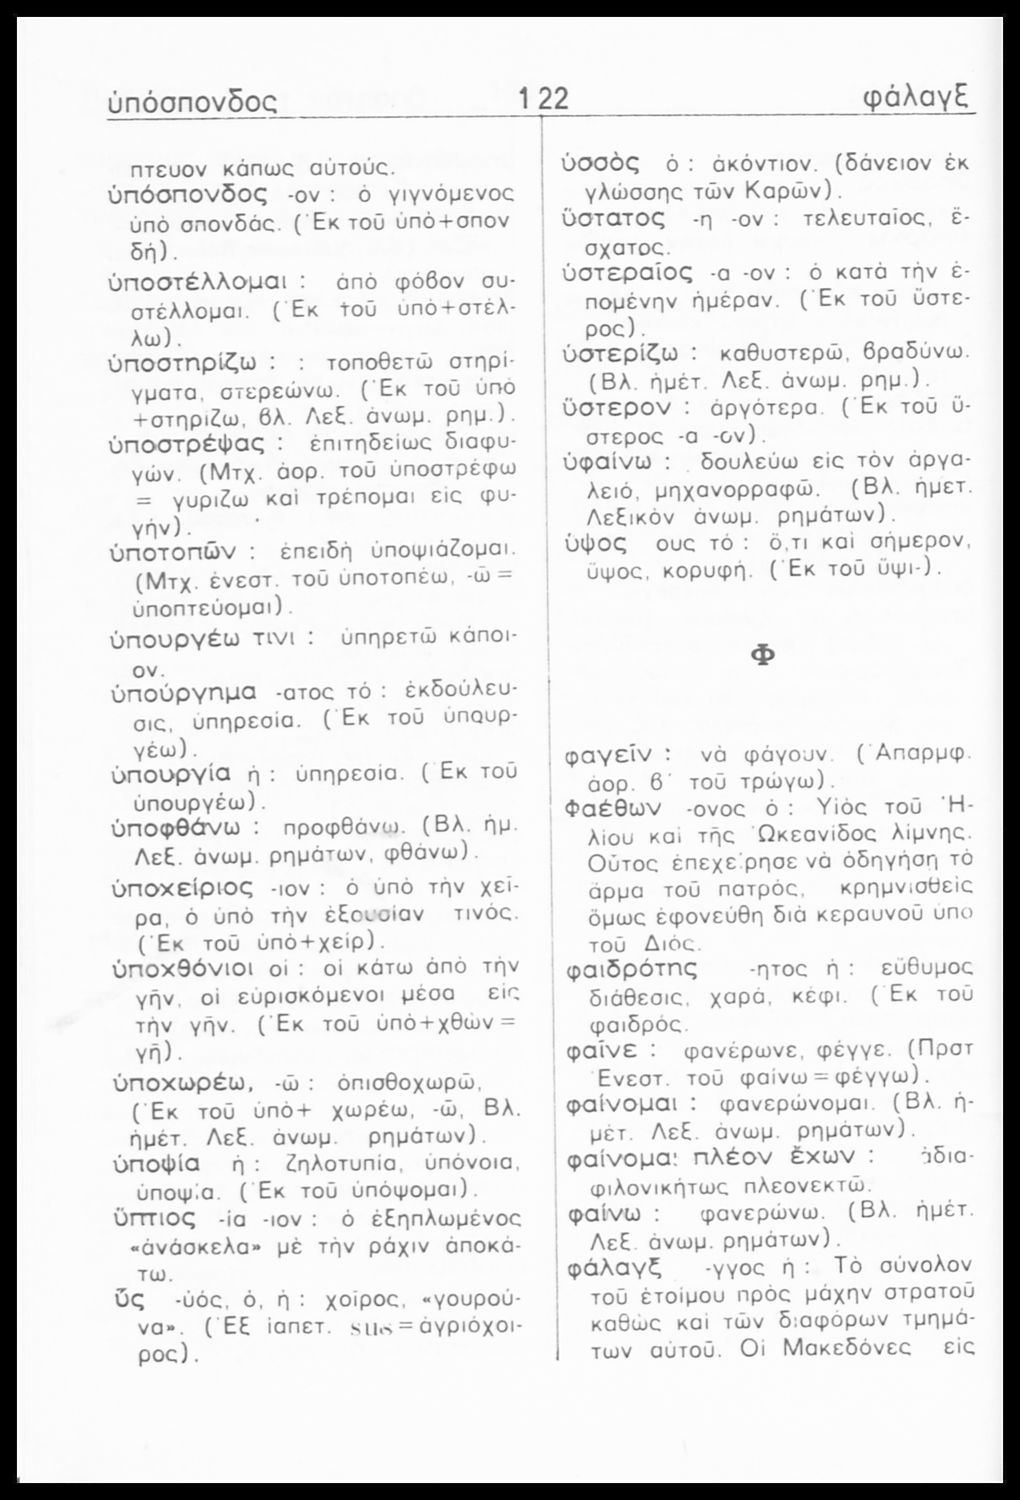 ὑπόσπονδος 122 φάλαγξ
πτευον κάπως αὐτούς.
ὑπόσπονδος -ον : ὁ γιγνόμενος
ὑπὸ σπονδάς. (Ἐκ τοῦ ὑπὸ+σπον
δή).
ὑποστέλλομαι : ἀπὸ φόβον συ-
στέλλομαι. (Ἐκ τοῦ ὑπὸ+στέλ-
λω).
ὑποστηρίζω : : τοποθετῶ στηρί-
γματα, στερεώνω. (Ἐκ τοῦ ὑπὸ
+στηρίζω, βλ. Λεξ. ἀνωμ. ρημ.).
ὑποστρέψας : ἐπιτηδείως διαφυ-
γών. (Μτχ. ἀορ. τοῦ ὑποστρέφω
= γυρίζω καὶ τρέπομαι εἰς φυ-
γήν).
ὑποτοπῶν : ἐπειδὴ ὑποψιάζομαι.
(Μτχ. ἐνεστ. τοῦ ὑποτοπέω, -ῶ =
ὑποπτεύομαι).
ὑπουργέω τινι : ὑπηρετῶ κάποι-
ον.
ὑπούργημα -ατος τό : ἐκδούλευ-
σις, ὑπηρεσία. (Ἐκ τοῦ ὑπουρ-
γέω).
ὑπουργία ἡ : ὑπηρεσία. (Ἐκ τοῦ
ὑπουργέω).
ὑποφθάνω : προφθάνω. (Βλ. ἡμ.
Λεξ. ἀνωμ. ρημάτων, φθάνω).
ὑποχείριος -ιον : ὁ ὑπὸ τὴν χεῖ-
ρα, ὁ ὑπὸ τὴν ἐξουσίαν τινός.
(Ἐκ τοῦ ὑπὸ+χείρ).
ὑποχθόνιοι οἱ : οἱ κάτω ἀπὸ τὴν
γῆν, οἱ εὑρισκόμενοι μέσα εἰς
τὴν γῆν. (Ἐκ τοῦ ὑπὸ+χθὼν =
γῆ).
ὑποχωρέω, -ῶ : ὀπισθοχωρῶ,
(Ἐκ τοῦ ὑπὸ+ χωρέω, -ῶ, Βλ.
ἡμέτ. Λεξ. ἀνωμ. ρημάτων).
ὑποψία ἡ : ζηλοτυπία, ὑπόνοια,
ὑποψία. (Ἐκ τοῦ ὑπόψομαι).
ὕπτιος -ία -ιον : ὁ ἐξηπλωμένος
«ἀνάσκελα» μὲ τὴν ράχιν ἀποκά-
τω.
ὗς -ὑός, ὁ, ἡ : χοῖρος, «γουρού-
να». (Ἐξ ἰαπετ. sus = ἀγριόχοι-
ρος).
ὑσσὸς ὁ : ἀκόντιον. (δάνειον ἐκ
γλώσσης τῶν Καρῶν).
ὕστατος -η -ον : τελευταῖος, ἔ-
σχατος.
ὑστεραῖος -α -ον : ὁ κατὰ τὴν ἑ-
πομένην ἡμέραν. (Ἐκ τοῦ ὕστε-
ρος).
ὑστερίζω : καθυστερῶ, βραδύνω.
(Βλ. ἡμέτ. Λεξ. ἀνωμ. ρημ.).
ὕστερον : ἀργότερα. (Ἐκ τοῦ ὕ-
στερος -α -ον).
ὑφαίνω : δουλεύω εἰς τὸν ἀργα-
λειό, μηχανορραφῶ. (Βλ. ἡμετ.
Λεξικὸν ἀνωμ. ρημάτων).
ὕψος ους τό : ὅ,τι καὶ σήμερον,
ὕψος, κορυφή. (Ἐκ τοῦ ὕψι-).
Φ
φαγεῖν : νὰ φάγουν. (Ἀπαρμφ.
ἀορ. β΄ τοῦ τρώγω).
Φαέθων -ονος ὁ : Υἱὸς τοῦ Ἡ-
λίου καὶ τῆς Ὠκεανίδος λίμνης.
Οὗτος ἐπεχείρησε νὰ ὁδηγήσῃ τὸ
ἅρμα τοῦ πατρός, κρημνισθεὶς
ὅμως ἐφονεύθη διὰ κεραυνοῦ ὑπὸ
τοῦ Διός.
φαιδρότης -ητος ἡ : εὔθυμος
διάθεσις, χαρά, κέφι. (Ἐκ τοῦ
φαιδρός.
φαῖνε : φανέρωνε, φέγγε. (Πρστ
Ἐνεστ. τοῦ φαίνω = φέγγω).
φαίνομαι : φανερώνομαι. (Βλ. ἡ-
μέτ. Λεξ. ἀνωμ. ρημάτων).
φαίνομαι πλέον ἔχων : ἀδια-
φιλονικήτως πλεονεκτῶ.
φαίνω : φανερώνω. (Βλ. ἡμέτ.
Λεξ. ἀνωμ. ρημάτων).
φάλαγξ -γγος ἡ : Τὸ σύνολον
τοῦ ἑτοίμου πρὸς μάχην στρατοῦ
καθὼς καὶ τῶν διαφόρων τμημά-
των αὐτοῦ. Οἱ Μακεδόνες εἰς